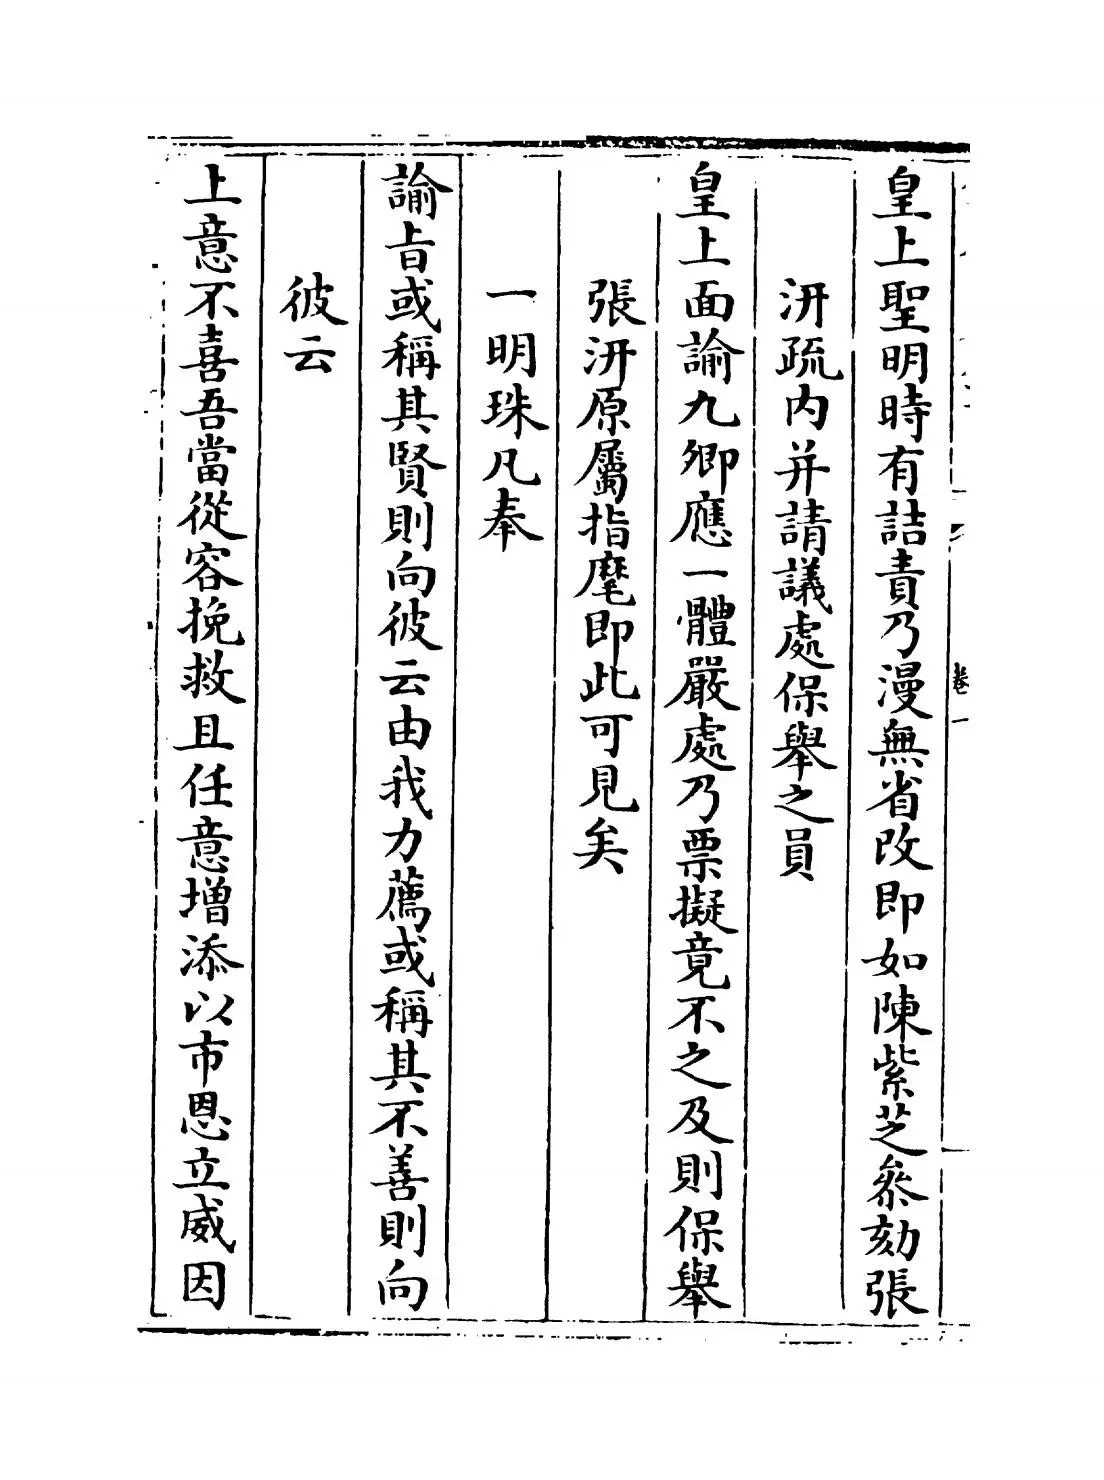 皇上聖明時有詰責乃漫無省改即如陳紫芝叅劾張
汧疏内并請議處保舉之員
皇上面諭九卿應一體嚴處乃票擬竟不之及則保舉
張汧原屬指麾即此可見矣
一明珠凡奉
諭旨或稱其賢則向彼云由我力薦或稱其不善則向
彼云
上意不喜吾當從容挽救且任意增添以市恩立威因
卷一